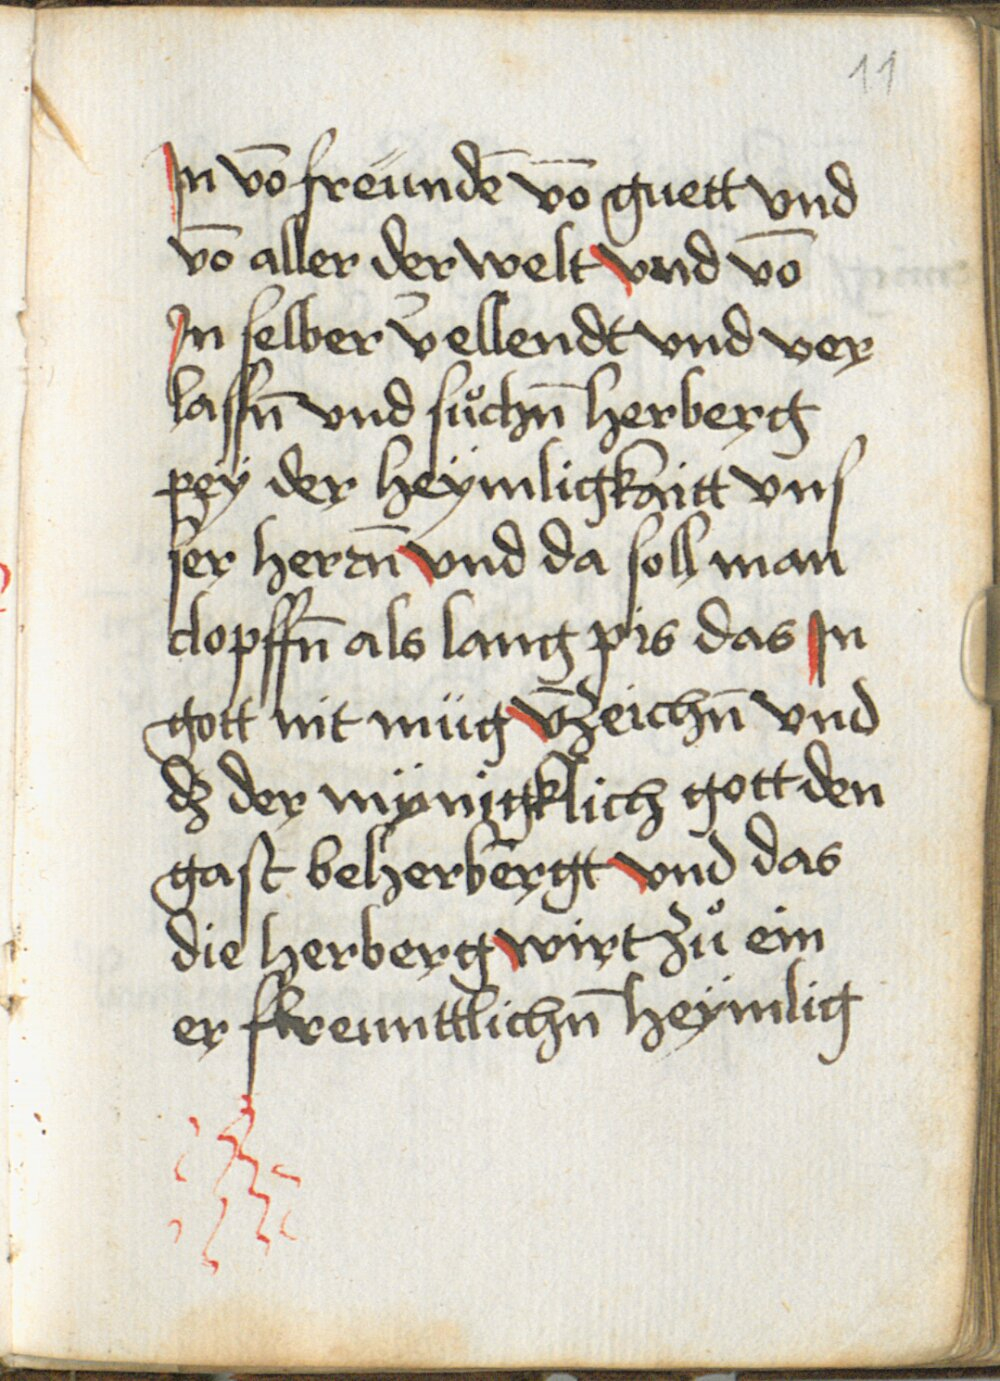 11
In vō freündē vō guett vnd
vō aller der welt vnd vō
In selber v̄ellendt vnd ver
lassn̄ vnd sůchn̄ herberg
pey der heÿmligkaitt vns
ser herrn̄ vnd da soll man
clopffn̄ als lang pis das In
gott nit müg v̄zeichn̄ vnd
dz der mÿnigklich gott den
gast beherbergt vnd das
die herberg wirt zů ein
er freunttlichn̄ heÿmlig